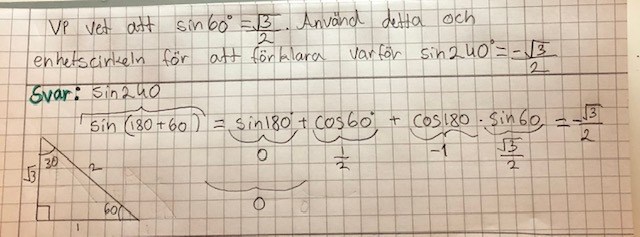 VP vet att sin60° = √3/2. Använd detta och
enhetscirkeln för att förklara varför sin240° = -√3/2
Svar: sin240
sin (180+60) = sin180° + cos60° + cos180 · sin60 = -√3/2
0 1/2 -1 √3/2
0
30 √3 2
60
1